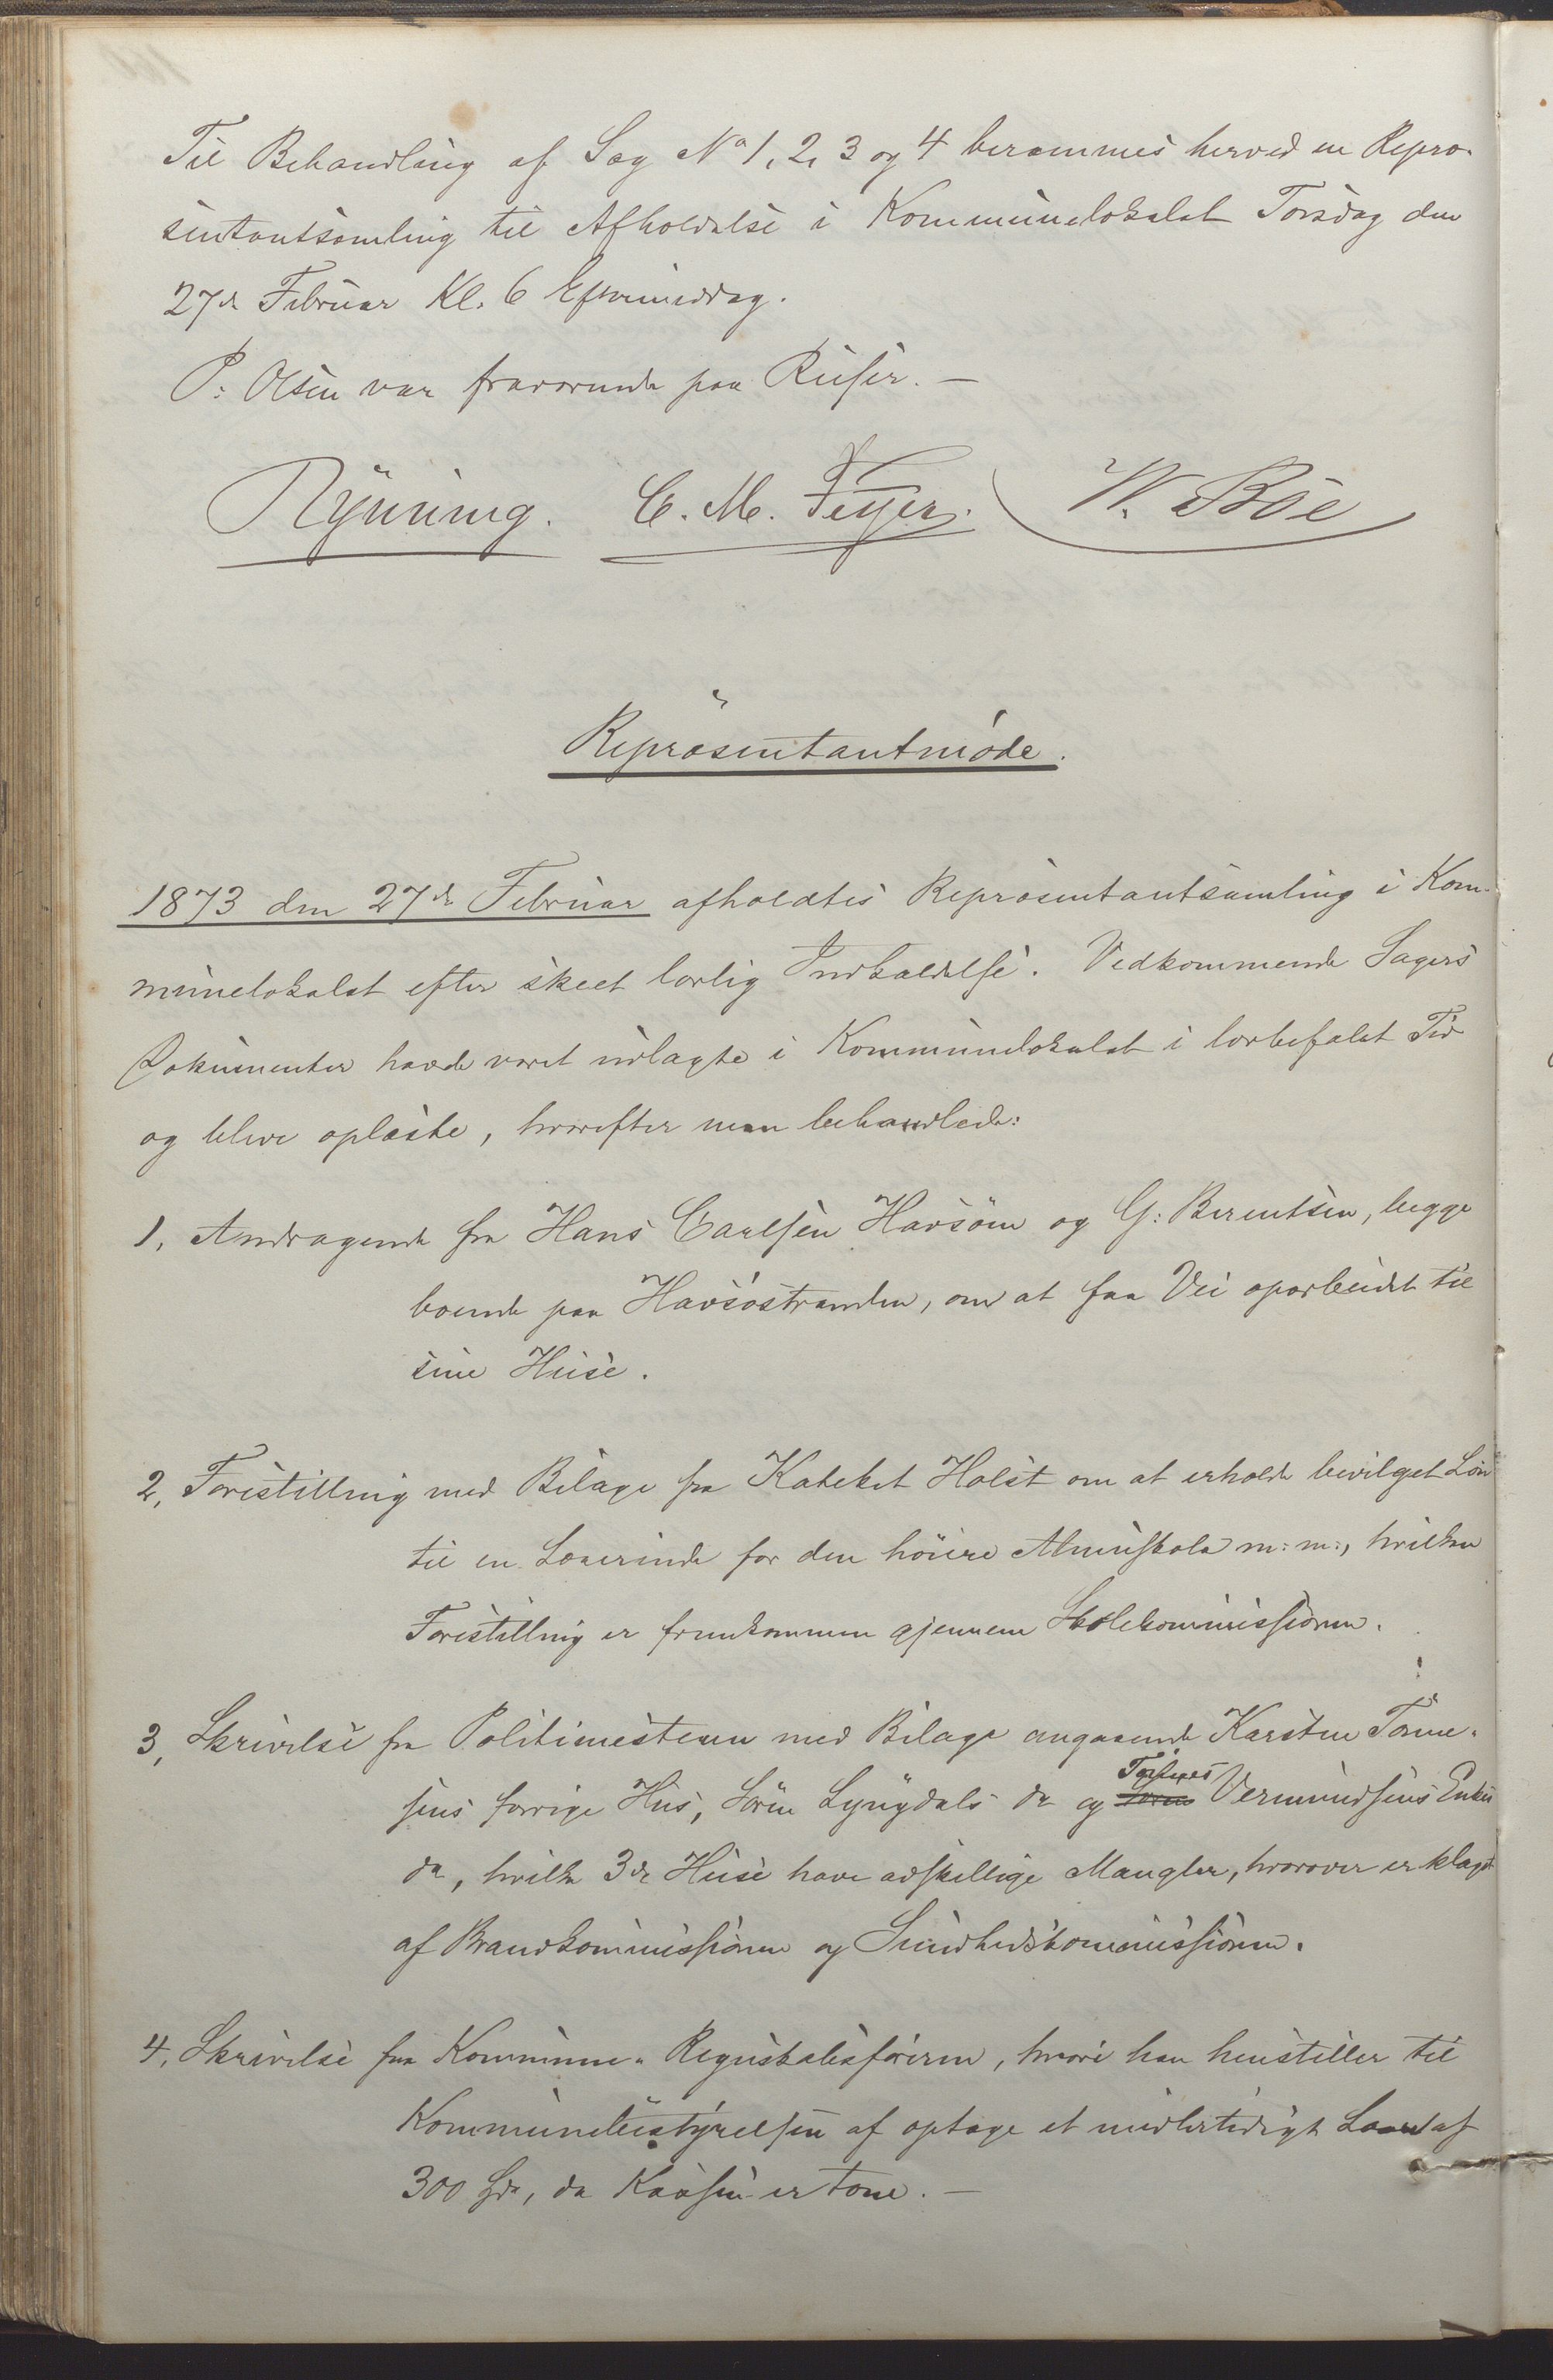 Til Behandling af Sag No 1, 2, 3 og 4 berammes herved en Repræ-
sentantsamling til Afholdelse i Kommunelokalet Torsdag den
27de Februar Kl. 6 Eftermiddag.
P: Olsen var fraværende paa Reiser. —
Rynning. C. M. Feyer. W. Böe
Repræsentantmöde.
1873 den 27de Februar afholdtes Repræsentantsamling i Kom-
munelokalet efter skeet lovlig Indkaldelse. Vedkommende Sagers
Dokumenter havde været udlagte i Kommunelokalet i lovbefalet Tid
og bleve oplæste, hvorefter man behandlede:
1, Andragende fra Hans Carlsen Havsöen og G: Berentsen, begge
boende paa Havsöstranden, om at faa Vei oparbeidet til
sine Huse.
2, Forestilling med Bilage fra Kateket Holst om at erholde bevilget Lön
til en Lærerinde for den höiere Almueskole m: m:, hvilken
Forestilling er fremkommen gjennem Skolekommissionen.
3, Skrivelse fra Politimesteren med Bilage angaaende Karsten Tönne-
sens forrige Hus, Sören Lyngdals do og Vermundsens Enkes
do, hvilke 3de Huse have adskillige Mangler, hvorover er klaget
af Brandkommissionen og Sundhedskommissionen.
4, Skrivelse fra Kommune-Regnskabsföreren, hvori han henstiller til
Kommunebestyrelsen af optage et midlertidigt Laan af
300 Spd, da Kassen er tom. —